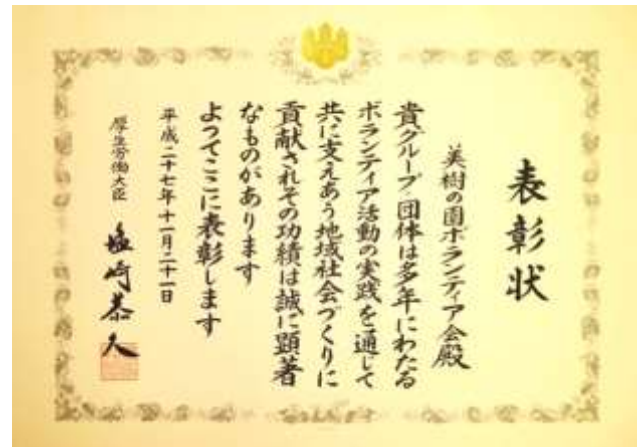 表彰状
美樹の園ボランティア会殿
貴グループ団体は多年にわたる
ボランティア活動の実践を通じて
共に支えあう地域社会づくりに
貢献されその功績は誠に顕著
なものがあります
よってここに表彰します
平成二十七年十一月二十一日
厚生労働大臣 塩崎恭久